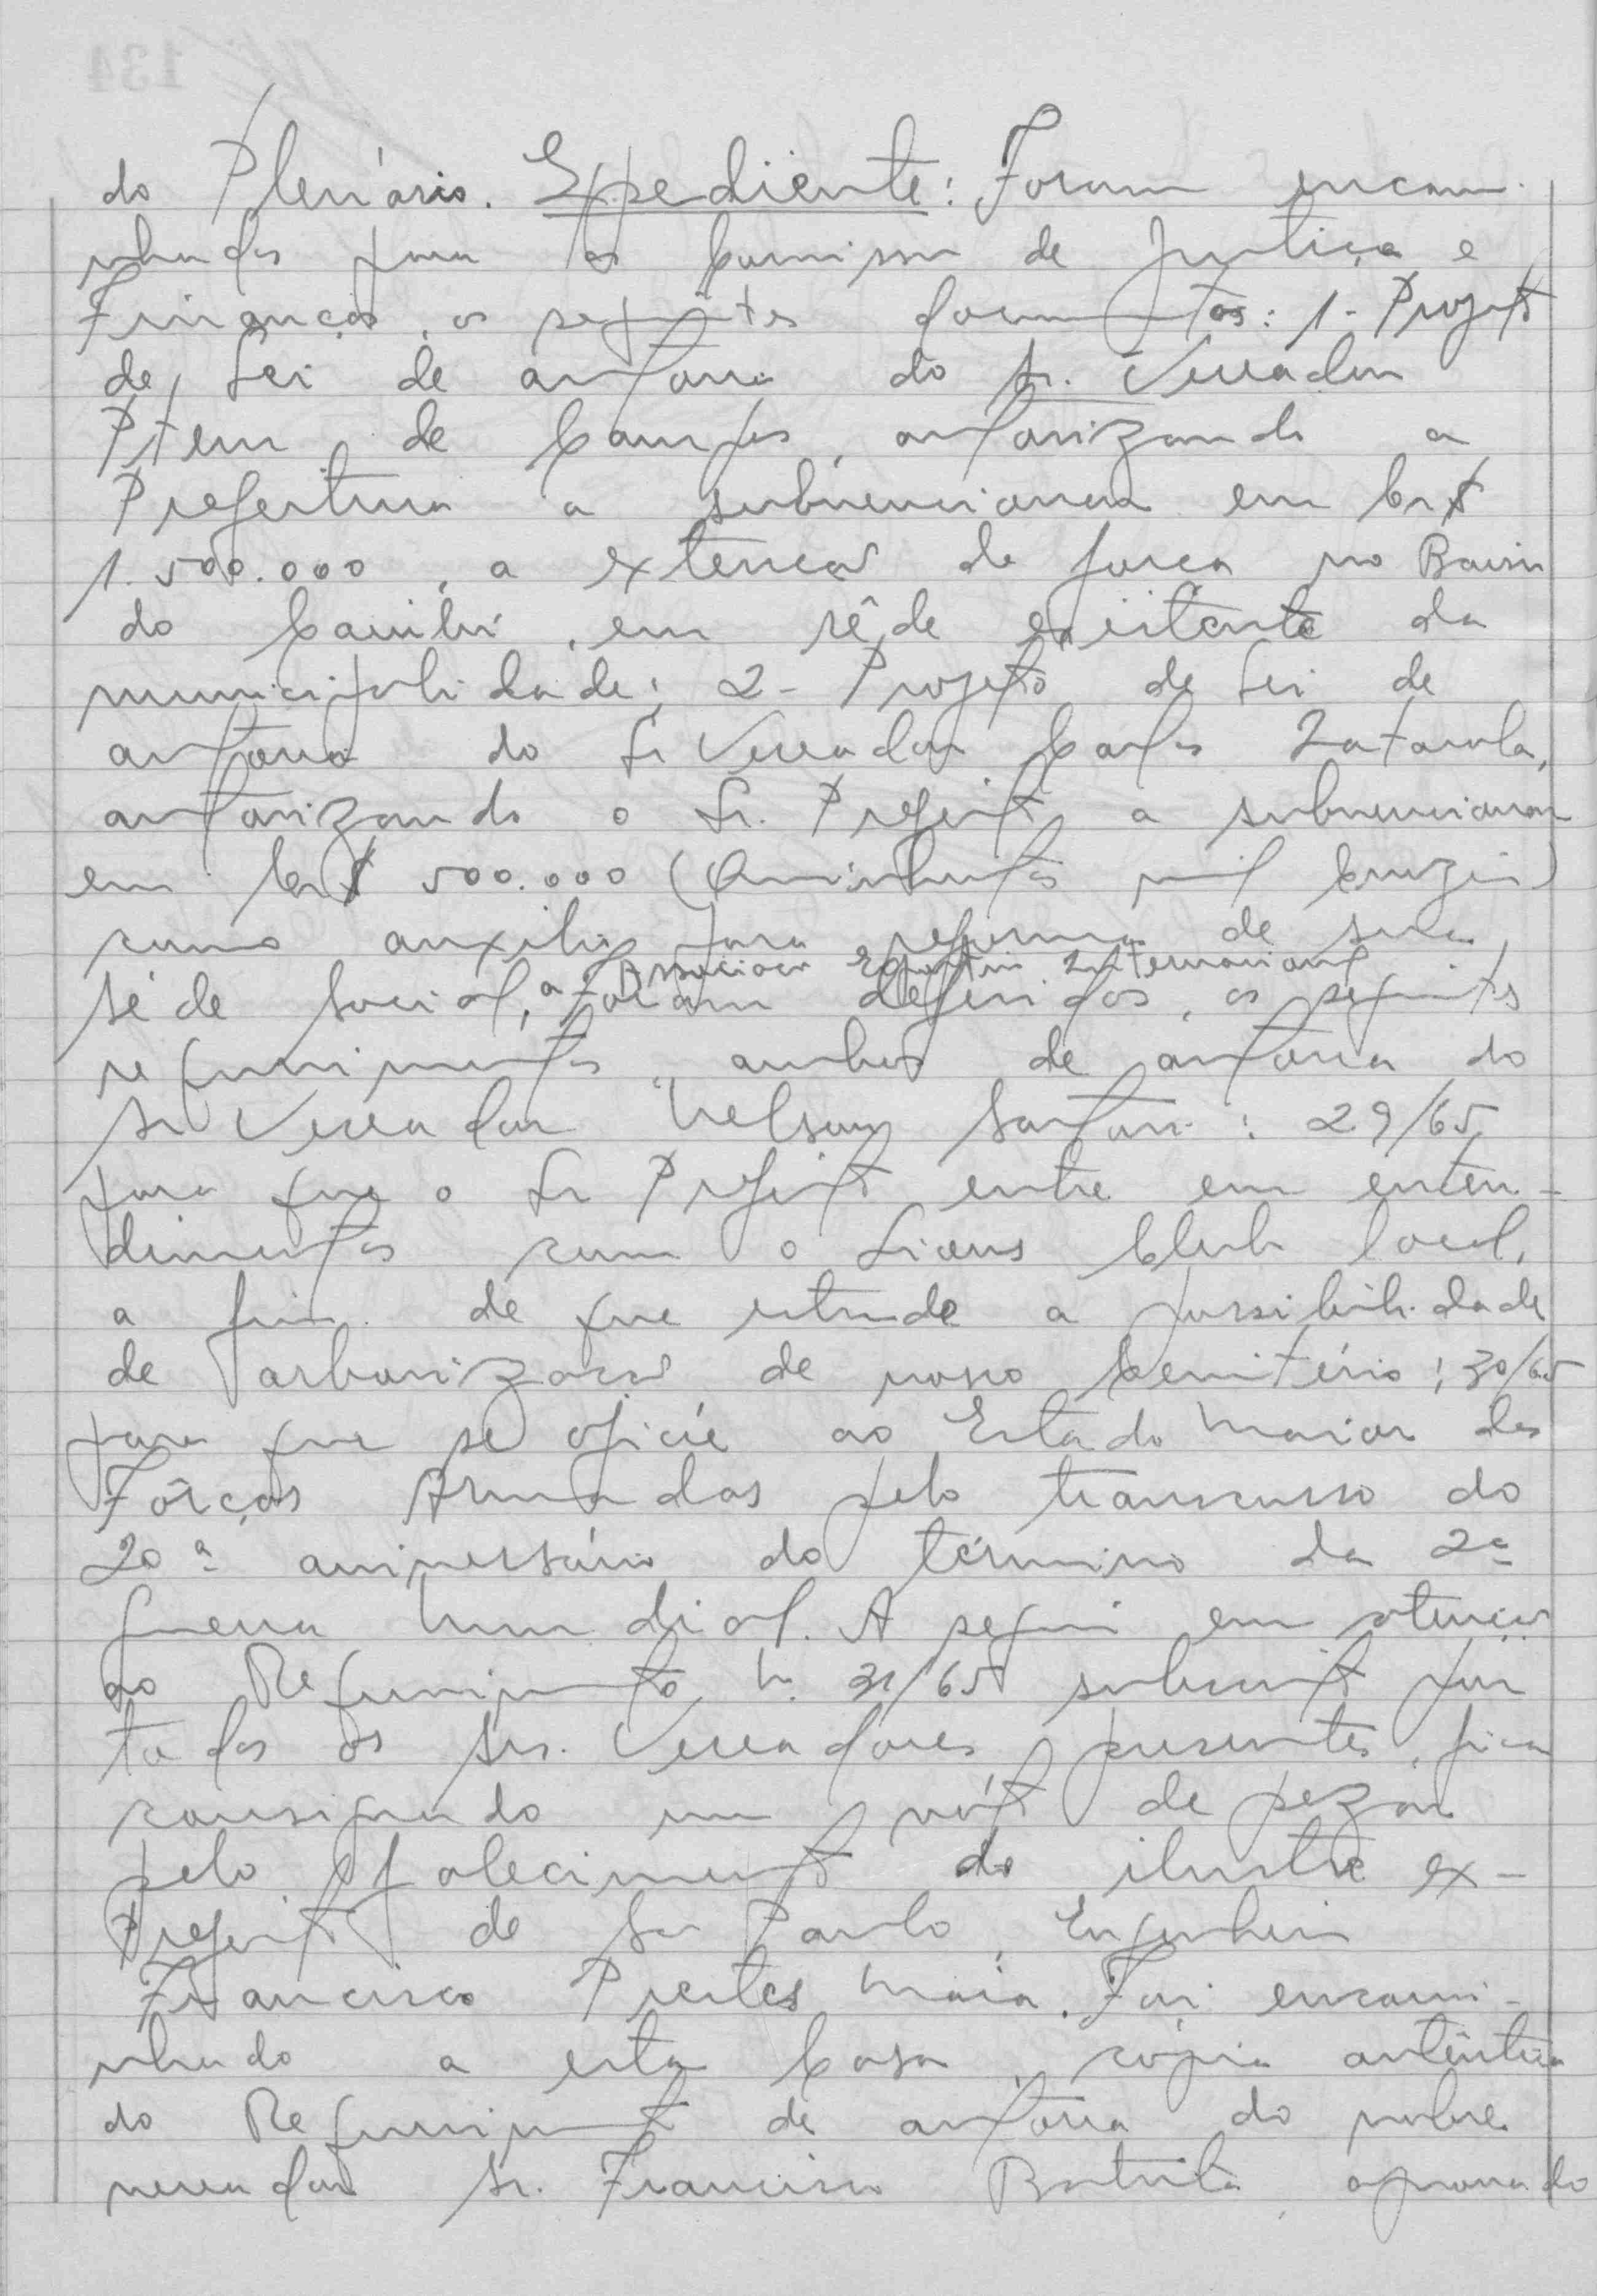 do Plenário. Expediente: Foram encami-
nhados para as Comissões de Justiça e
Finanças, os seguintes documentos: 1- Projeto
de Lei de autoria do Sr. Vereador
de Campos, autorizando a
Prefeitura a subvencionar em Cr$
1.500.000, a extenção de força no Bairro
do Caxambú, em rêde existente da
municipalidade; 2- Projeto de Lei de
autoria do Sr Vereador Carlos
autorizando o Sr. Prefeito a subvencionar
em Cr$ 500.000 (Quinhentos mil Cruzeiros)
como auxilio para reforma de sua
a Associação Esportiva Internacional
séde social, Foram deferidos, os seguintes
requerimentos ambos de autoria do
Sr Vereador Nelson : 29/65
para que o Sr Prefeito entre em enten-
dimentos com o Lions Club local,
a fim de que estude a possibilidade
de arborização de nosso Cemitério; 30/65
para que se oficie ao Estado Maior das
Fôrças Armadas pelo transcurso do
20º aniversário do término da 2ª
guerra Mundial. A seguir em atenção
ao Requerimento N. 31/65 subscrito por
todos os Srs. Vereadores presentes, fica
consignado um vóto de pezar
pelo falecimento do ilustre ex-
Prefeito de São Paulo, Engenheiro
Francisco Prestes Maia. Foi encami-
nhado a esta Casa, cópia autêntica
do Requerimento de autoria do nobre
vereador Sr. Francisco Batista, aprovado